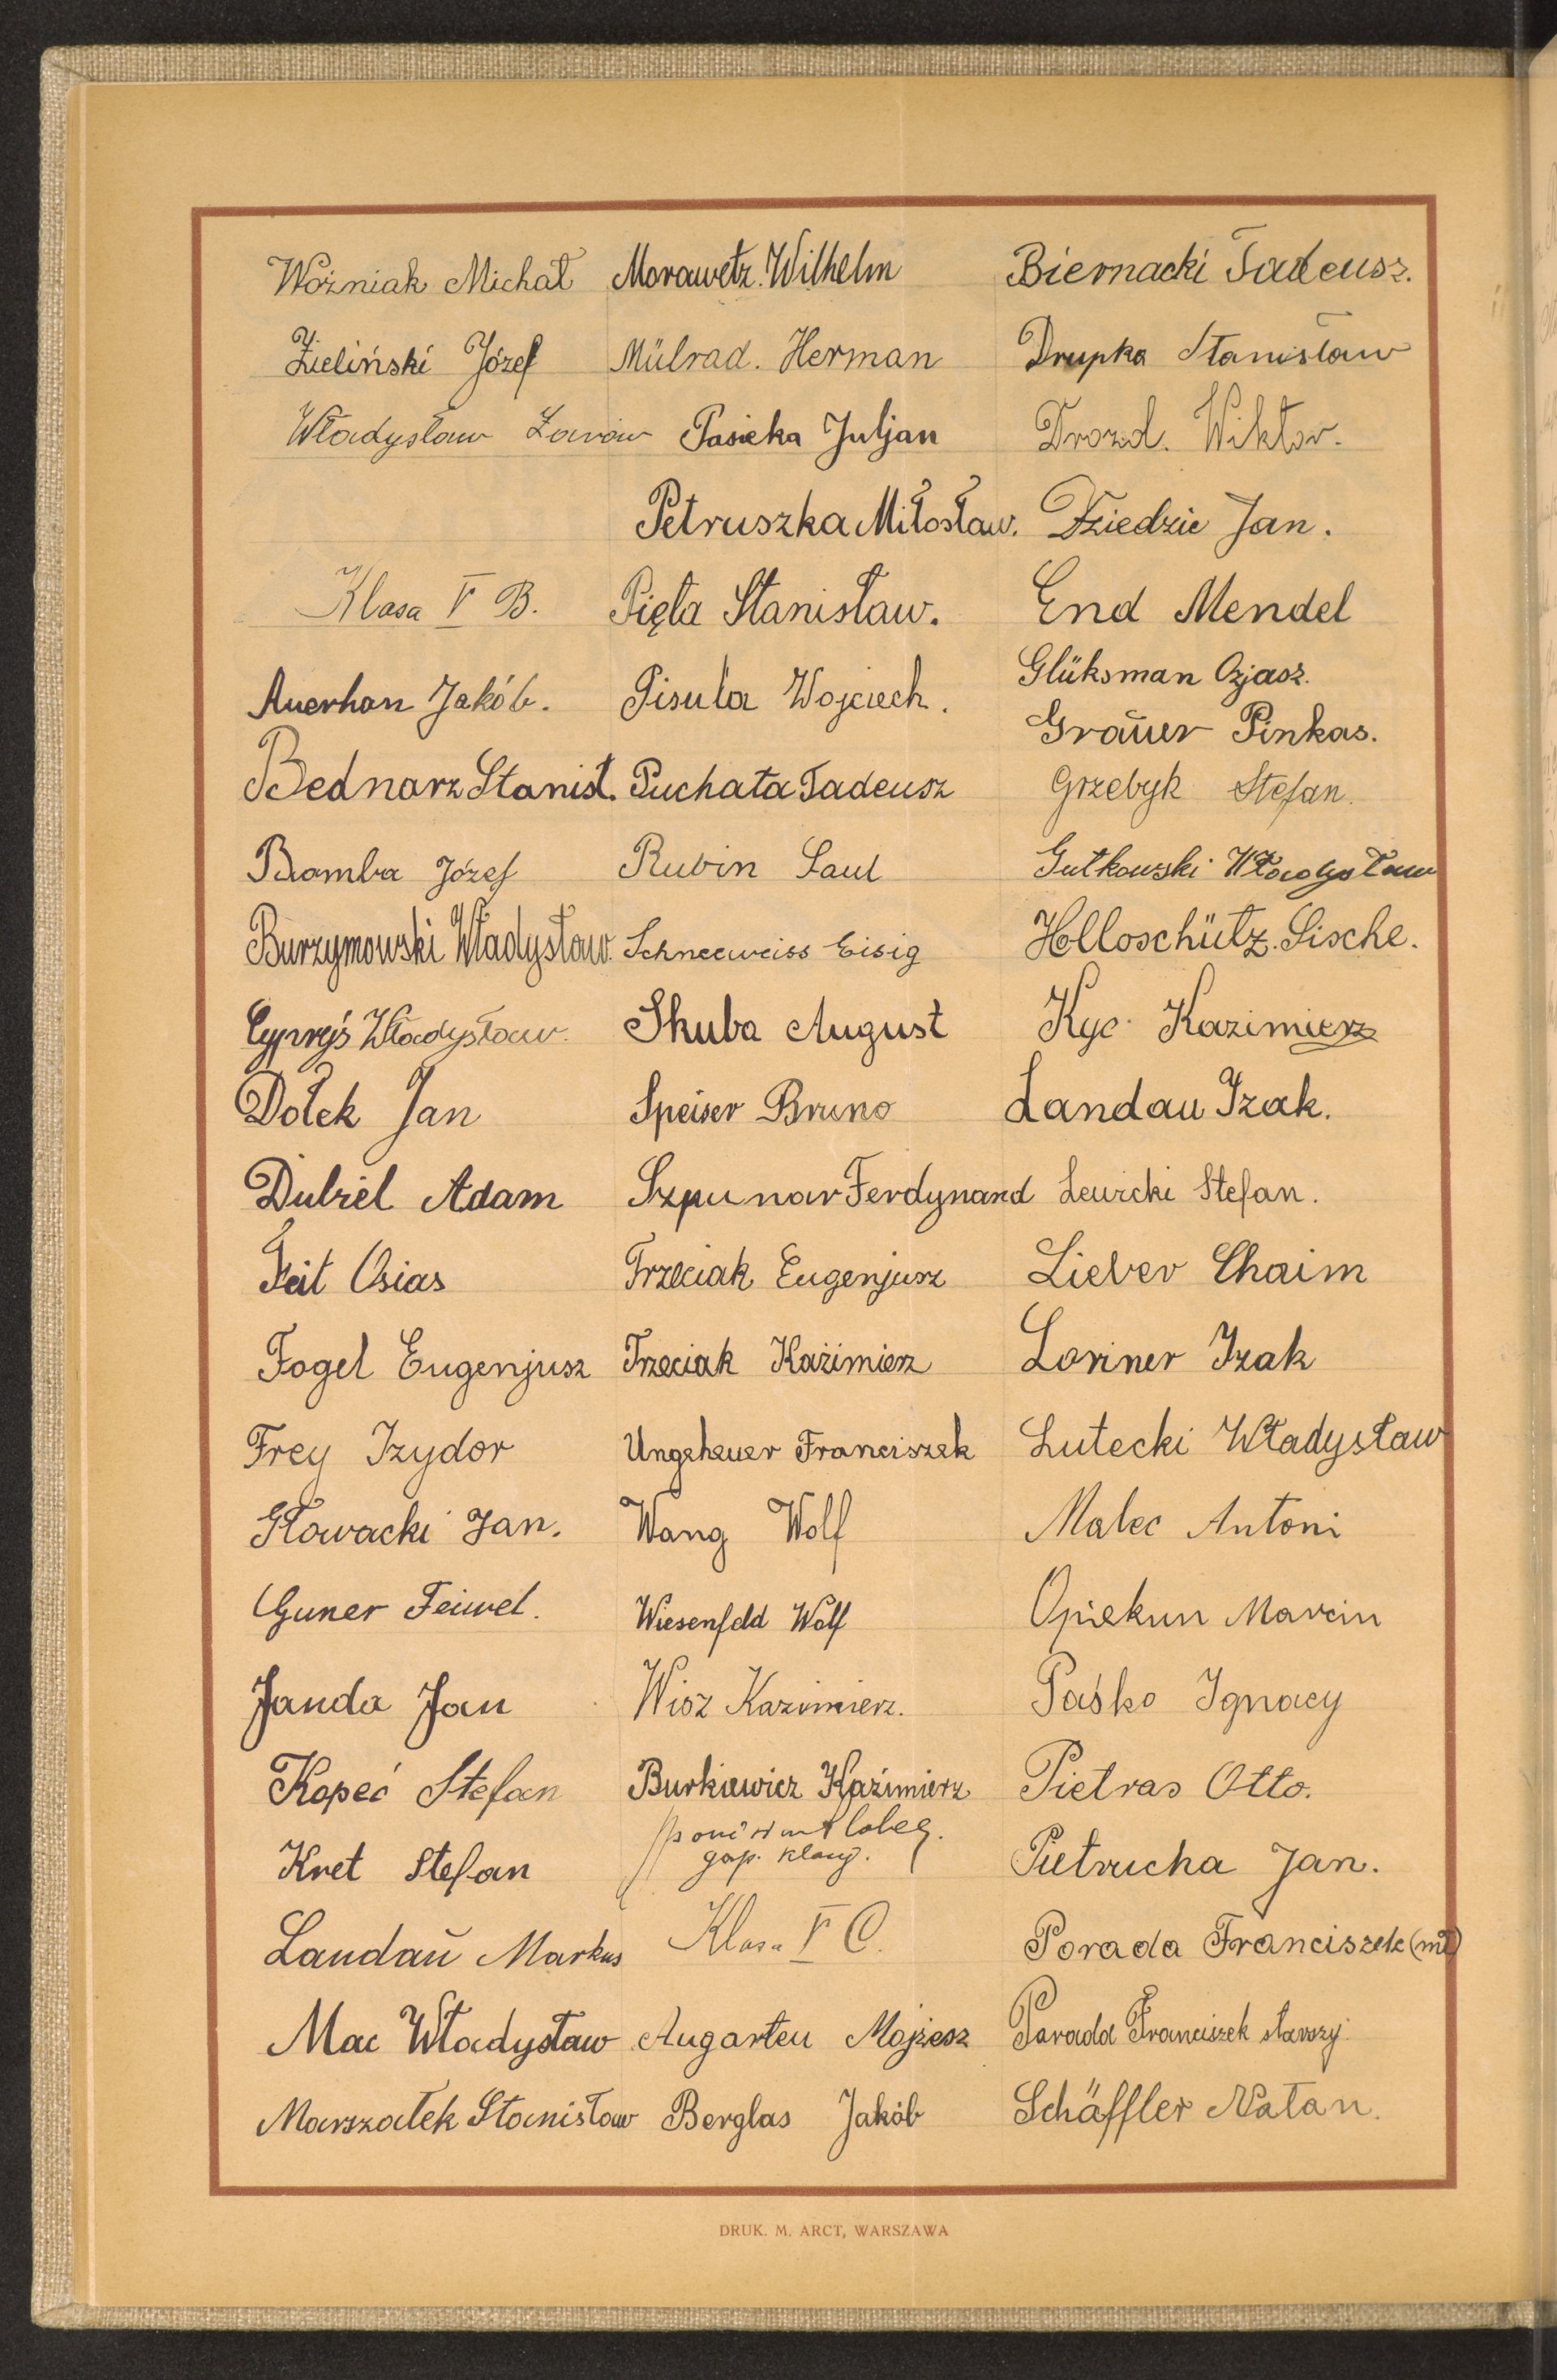 Woźniak Michał
Zieliński Józef
Władysław Żarów
Klasa V B.
Auerhan Jakób.
Bednarz Stanisł.
Bomba Józef
Burzymowski Władysław.
Cypryś Władysław.
Dołek Jan
Dubiel Adam
Feit Osias
Fogel Eugenjusz
Frey Izydor
Głowacki Jan.
Guner Feiwel.
Janda Jan
Kopeć Stefan
Kret Stefan
Landaŭ Markus
Mac Władysław
Marszałek Stanisław
Morawetz. Wilhelm
Mülrad. Herman
Pasieka Juljan
Petruszka Miłosław.
Pięta Stanisław.
Pisula Wojciech.
Puchała Tadeusz
Rubin Saul
Schneeweiss Eisig
Skuba August
Speiser Bruno
Szpunar Ferdynand
Trzeciak Eugenjusz
Trzeciak Kazimierz
Ungeheuer Franciszek
Wang Wolf
Wiesenfeld Wolf
Wióz Kazimierz.
Burkiewicz Kazimierz
klasy.
Klasa V C.
Augarten Mojżesz
Berglas Jakób
Biernacki Tadeusz.
Drupka Stanisław
Drozd. Wiktor.
Dziedzic Jan.
End Mendel
Glüksman Ozjasz.
Graŭer Pinkas.
Grzebyk Stefan.
Gutkowski Władysław
Holloschütz. Sische.
Kyc Kazimierz
Landau Izak.
Lewicki Stefan.
Lieber Chaim
Loriner Izak
Lutecki Władysław
Malec Antoni
Opiekun Marcin
Paśko Ignacy
Pietras Otto.
Pietrucha Jan.
Porada Franciszek (mł)
Porada Franciszek starszy.
Schäffler Natan.
DRUK. M. ARCT, WARSZAWA